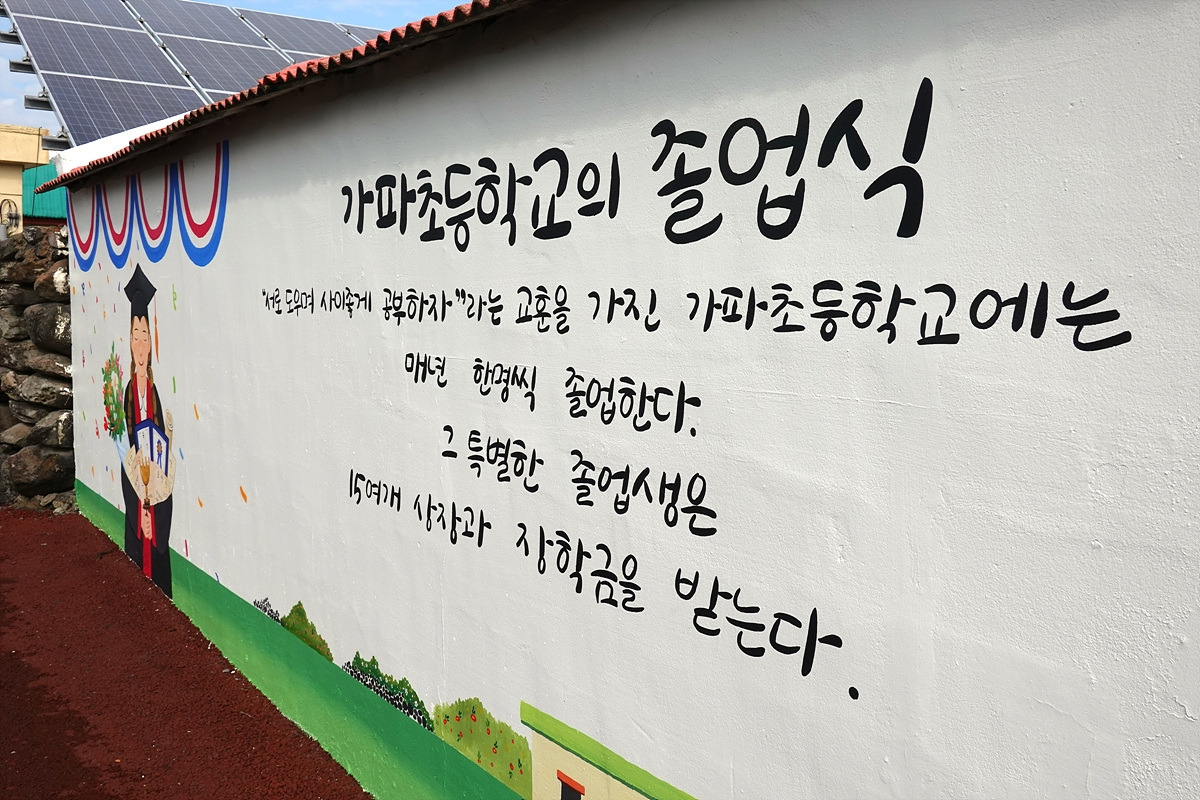 가파초등학교의 졸업식
"서로 도우며 사이좋게 공부하자"라는 교훈을 가진 가파초등학교에는
매년 한명씩 졸업한다.
그 특별한 졸업생은
15여개 상장과 장학금을 받는다.